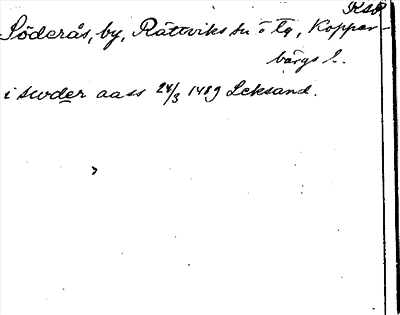 KSR
Söderås, by, Rättviks sn o tg, Kopparbergs l.
i swder aass 24/3 1489 Leksand.